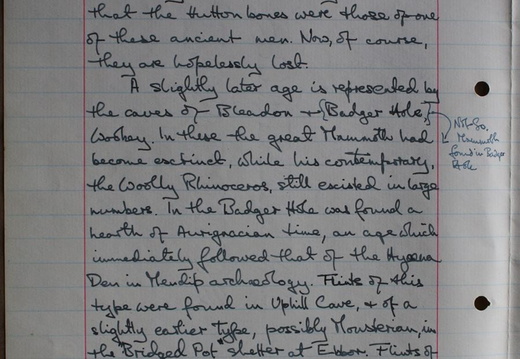 that the Hutton bones were those of one
of these ancient men. Now, of course,
they are hopelessly lost.
A slightly later age is represented by
the caves of Bleadon + {Badger Hole,}
Wookey. In these the great Mammoth had
become exctinct, while his contemporary,
the Woolly Rhinoceros, still excisted in large
numbers. In the Badger Hole was found a
hearth of Aurignacian time, an age which
immediately followed that of the Hyaena
Den in Mendip archaeology. Flints of this
type were found in Uphill Cave, + of a
slightly earlier type, possibly Mousterian, in
the Bridged Pot shelter at Ebbor. Flints of
Not so,
Mammoth
found in Badger
Hole